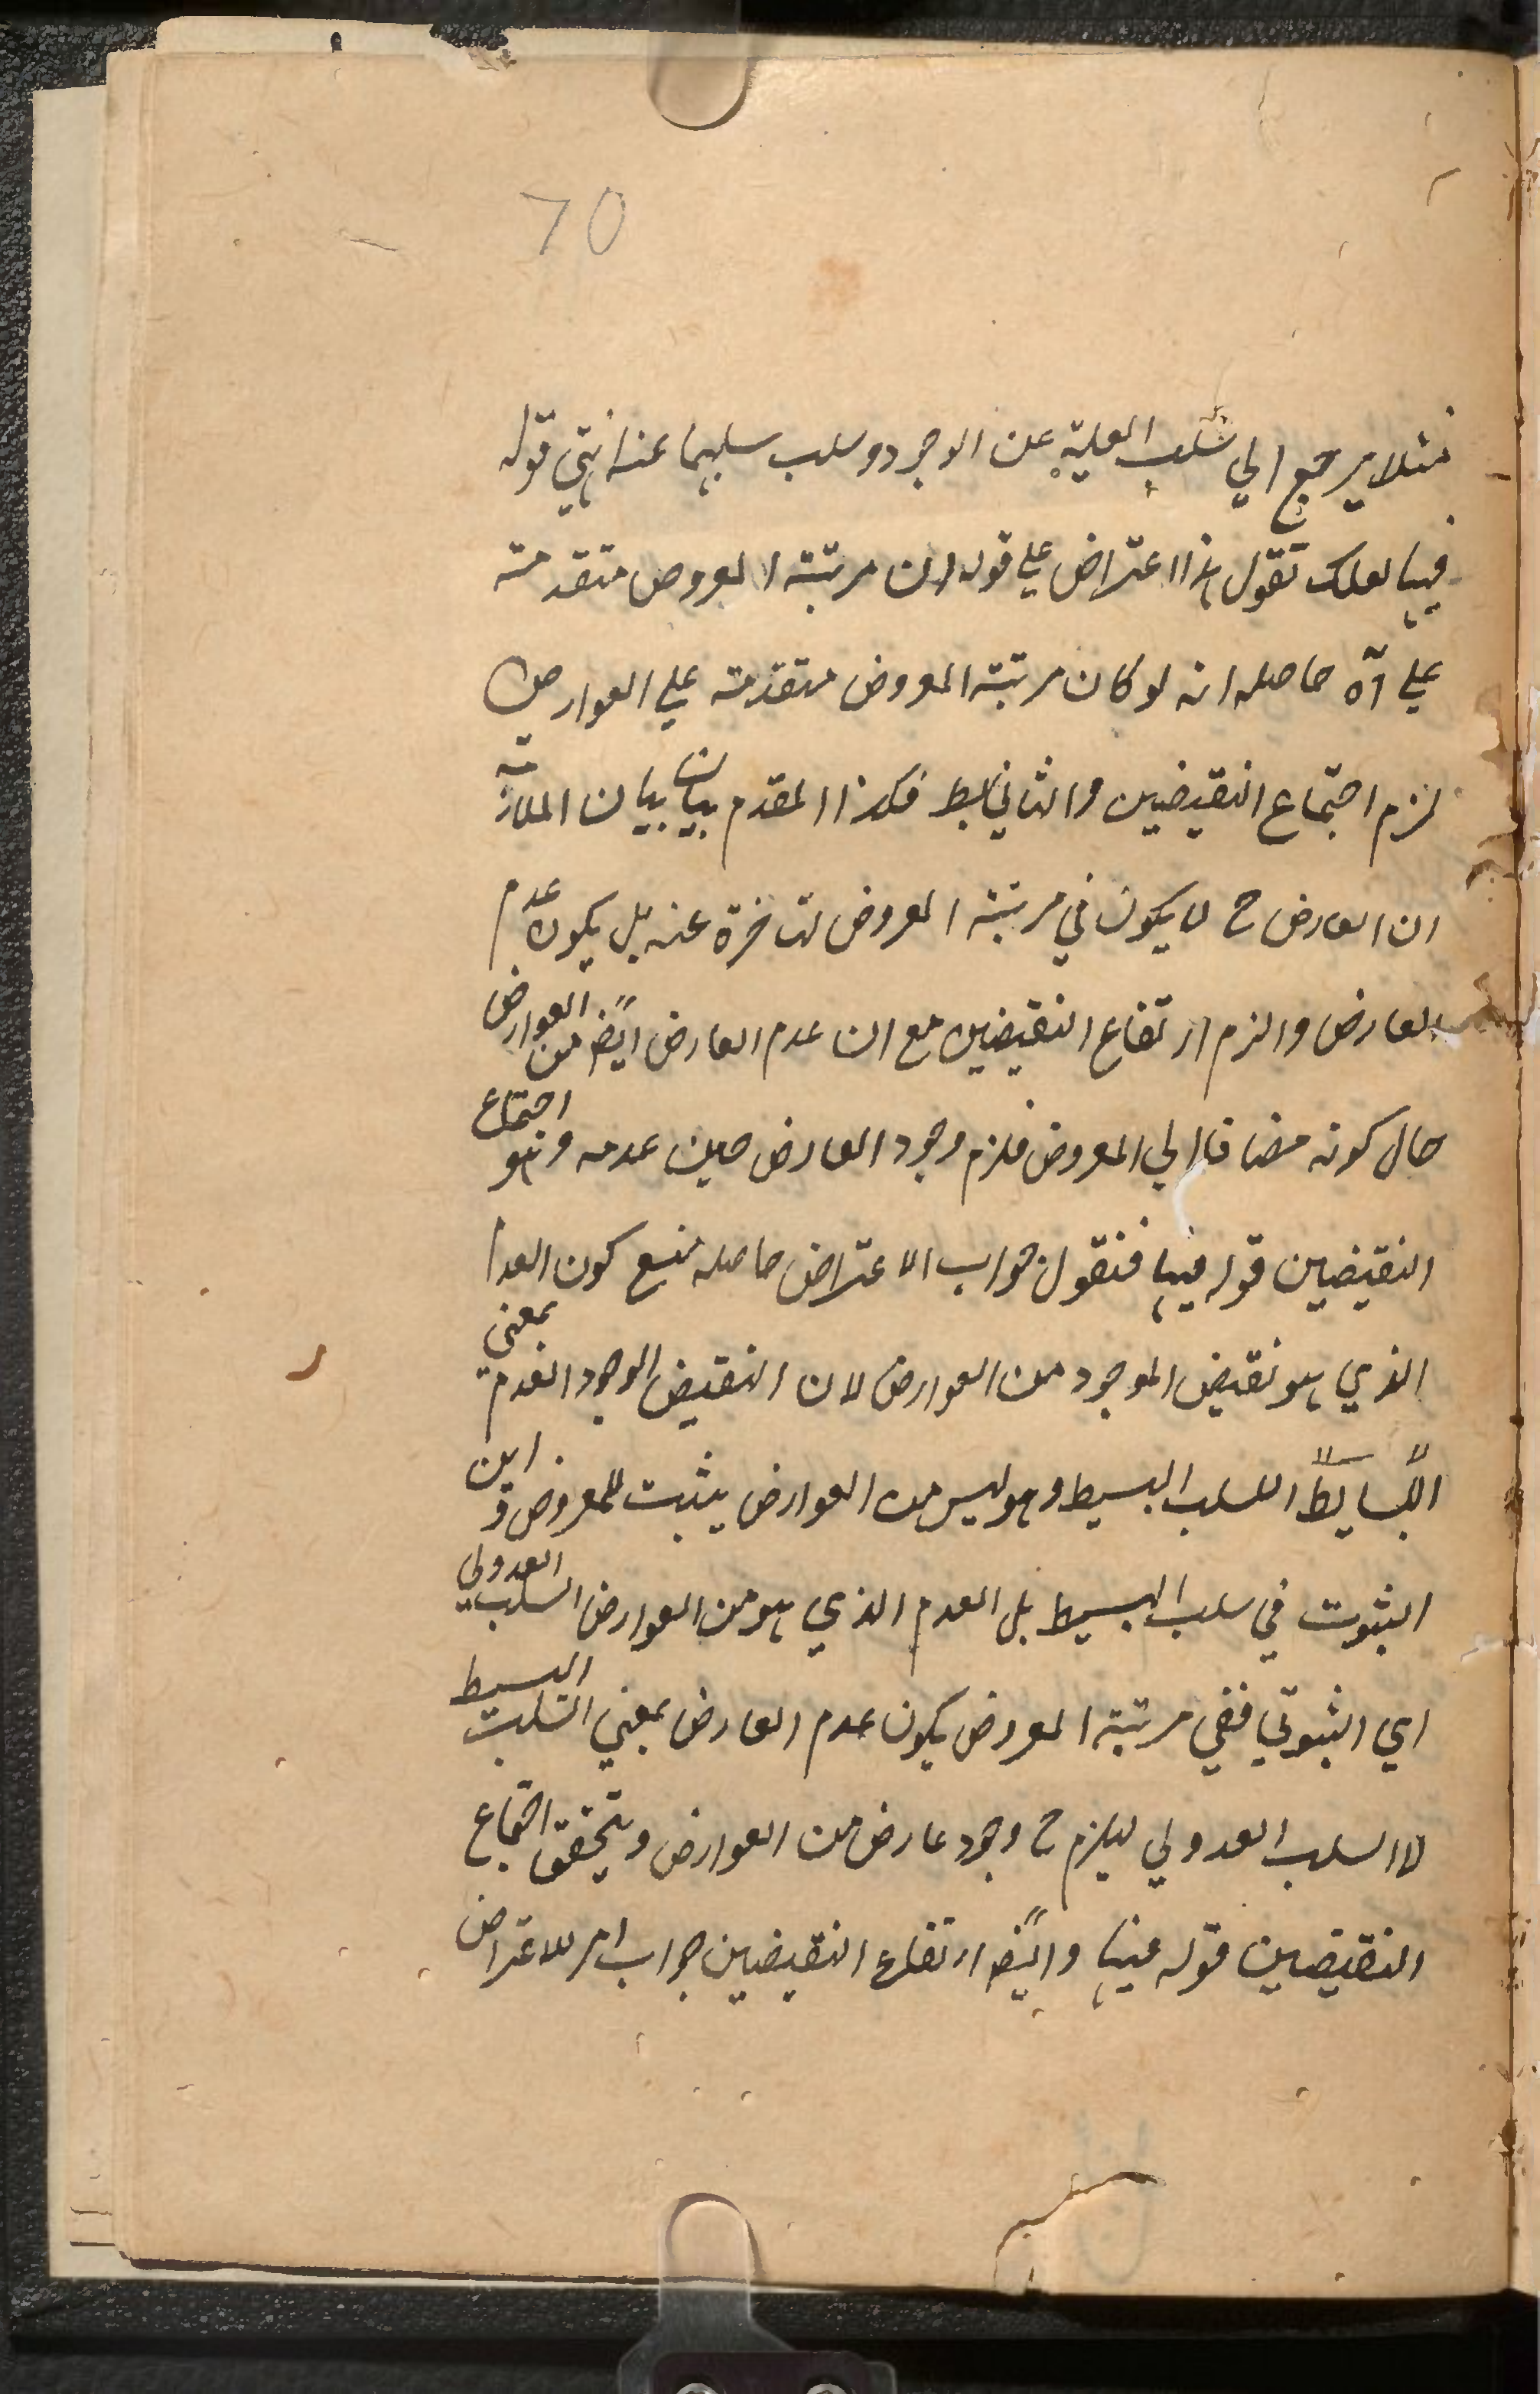 70
مثلا يرجع الي سلب العلية عن الوجود وسلب سلبهما عنه انتهي قوله
فيها لعلك تقول هذا اعتراض علي قوله ان مرتبة المعروض متقدمة
علي آه حاصله انه لو كان مرتبة المعروض متقدمة علي العوارض
لزم اجتماع النقيضين والثاني بط فكذا المقدم بيان بيان الملازمة
ان العارض ح لا يكون في مرتبة المعروض لتاخره عنه بل يكون عدم
العارض والزم ارتفاع النقيضين مع ان عدم العارض ايضا من العوارض
حال كونه مضافا الي المعروض فلزم وجود العارض حين عدمه وهو اجتماع
النقيضين قوله فيها فنقول جواب الاعتراض حاصله منع كون العدم
الذي هو نقيض الموجود من العوارض لان النقيض الوجود العدم بمعني
السلب البسيط وهو ليس من العوارض يثبت للمعروض واين
الثبوت في سلب البسيط بل العدم الذي هو من العوارض السلب العدولي
اي الثبوتي ففي مرتبة المعروض يكون عدم العارض بمعني السلب البسيط
لا السلب العدولي ليلزم ح وجود عارض من العوارض ويتحقق اجتماع
النقيضين قوله فيها وايضا ارتفاع النقيضين جواب اخر للاعتراض